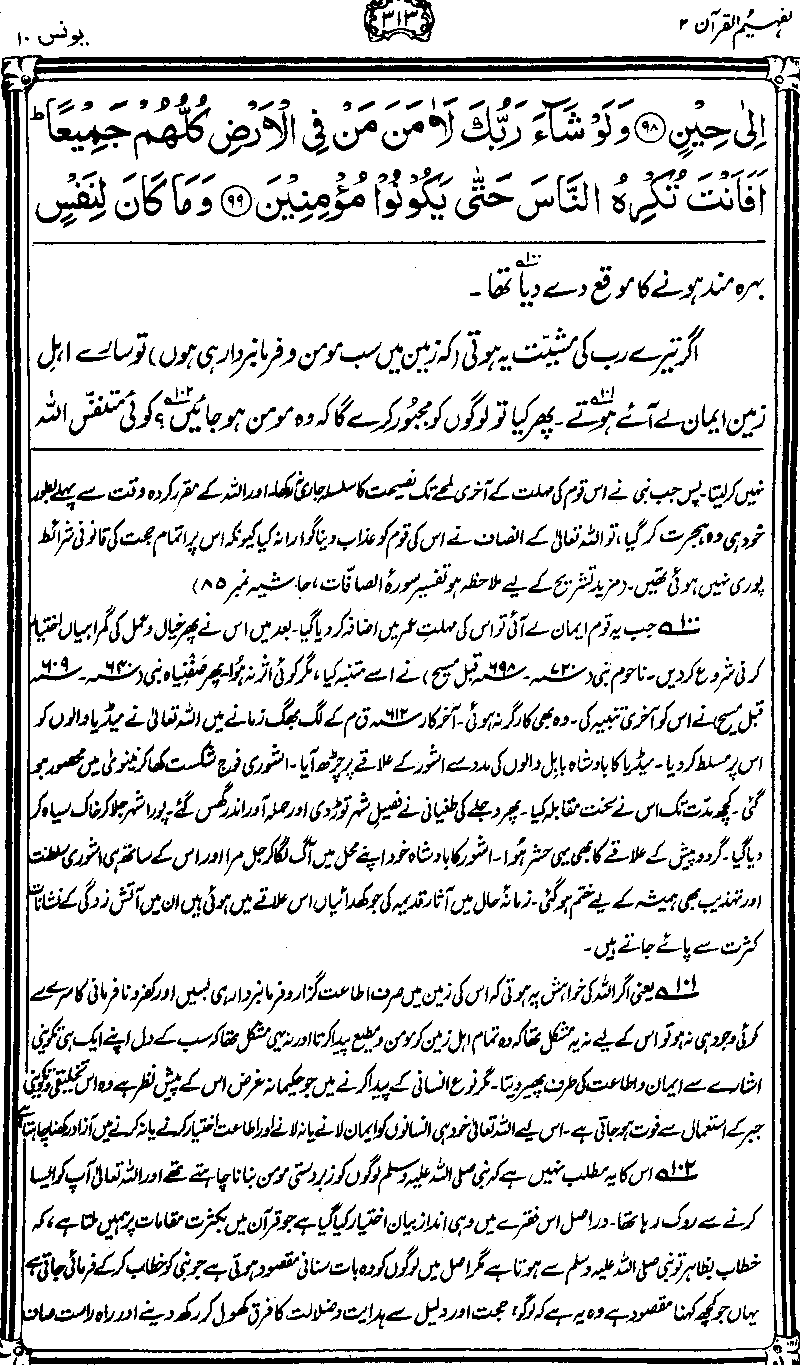 تفہیم القرآن ۲
۳۱۳
یونس ۱۰
اِلٰى حِيْنٍ ﴿۹۸﴾ وَلَوْ شَآءَ رَبُّكَ لَاٰمَنَ مَنْ فِي الْاَرْضِ كُلُّهُمْ جَمِيْعًا ؕ
اَفَاَنْتَ تُكْرِهُ النَّاسَ حَتّٰى يَكُوْنُوْا مُؤْمِنِيْنَ ﴿۹۹﴾ وَمَا كَانَ لِنَفْسٍ
بہرہ مند ہونے کا موقع دے دیا تھا ۔۱۰۰
اگر تیرے رب کی مشیّت یہ ہوتی (کہ زمین میں سب مومن و فرمانبردار ہی ہوں) تو سارے اہلِ
زمین ایمان لے آئے ہوتے ۱۰۱۔ پھر کیا تو لوگوں کو مجبور کرے گا کہ وہ مومن ہو جائیں ۱۰۲؟ کوئی متنفّس اللہ
نہیں کر لیتا۔ پس جب نبی نے اس قوم کی مہلت کے آخری لمحے تک نصیحت کا سلسلہ جاری نہ رکھا، اور اللہ کے مقرر کردہ وقت سے پہلے بطور
خود ہی وہ ہجرت کر گیا، تو اللہ تعالیٰ کے انصاف نے اس کی قوم کو عذاب دینا گوارا نہ کیا کیونکہ اس پر اتمام حجت کی قانونی شرائط
پوری نہیں ہوئی تھیں۔ (مزید تشریح کے لیے ملاحظہ ہو تفسیر سورۂ الصافّات، حاشیہ نمبر ۸۵)
۱۰۰ جب یہ قوم ایمان لے آئی تو اس کی مہلتِ عمر میں اضافہ کر دیا گیا۔ بعد میں اس نے پھر خیال و عمل کی گمراہیاں اختیار
کرنی شروع کر دیں۔ ناحوم نبی (۷۲۰ء۔ ۶۹۸ء قبل مسیح) نے اسے متنبہ کیا، مگر کوئی اثر نہ ہوا۔ پھر صَفنیاہ نبی (۶۴۰ء۔ ۶۰۹ء
قبل مسیح) نے اس کو آخری تنبیہ کی۔ وہ بھی کارگر نہ ہوئی۔ آخر کار ۶۱۲ء ق م کے لگ بھگ زمانے میں اللہ تعالیٰ نے میڈیا والوں کو
اس پر مسلط کر دیا۔ میڈیا کا بادشاہ بابل والوں کی مدد سے اشور کے علاقے پر چڑھ آیا۔ اشوری فوج شکست کھا کر نینویٰ میں محصور ہو
گئی۔ کچھ مدّت تک اس نے سخت مقابلہ کیا۔ پھر دجلے کی طغیانی نے فصیلِ شہر توڑ دی اور حملہ آور اندر گھس گئے۔ پورا شہر جلا کر خاک سیاہ کر
دیا گیا۔ گردو پیش کے علاقے کا بھی یہی حشر ہُوا۔ اشور کا بادشاہ خود اپنے محل میں آگ لگا کر جل مرا اور اس کے ساتھ ہی اشوری سلطنت
اور تہذیب بھی ہمیشہ کے لیے ختم ہو گئی۔ زمانۂ حال میں آثار قدیمہ کی جو کھدائیاں اس علاقے میں ہوئی ہیں ان میں آتش زدگی کے نشانات
کثرت سے پائے جاتے ہیں۔
۱۰۱ یعنی اگر اللہ کی خواہش یہ ہوتی کہ اس کی زمین میں صرف اطاعت گزار و فرمانبردار ہی بسیں اور کفر و نافرمانی کا سرے سے
کوئی وجود ہی نہ ہو تو اس کے لیے نہ یہ مشکل تھا کہ وہ تمام اہل زمین کو مومن و مطیع پیدا کرتا اور نہ یہی مشکل تھا کہ سب کے دل اپنے ایک ہی تکوینی
اشارے سے ایمان و اطاعت کی طرف پھیر دیتا۔ مگر نوع انسانی کے پیدا کرنے میں جو حکیمانہ غرض اس کے پیش نظر ہے وہ اس تخلیقی و تکوینی
جبر کے استعمال سے فوت ہو جاتی ہے۔ اس لیے اللہ تعالیٰ خود ہی انسانوں کو ایمان لانے یا نہ لانے اور اطاعت اختیار کرنے یا نہ کرنے میں آزاد رکھنا چاہتا ہے
۱۰۲ اس کا یہ مطلب نہیں ہے کہ نبی صلی اللہ علیہ وسلم لوگوں کو زبردستی مومن بنانا چاہتے تھے اور اللہ تعالیٰ آپ کو ایسا
کرنے سے روک رہا تھا۔ دراصل اس فقرے میں وہی انداز بیان اختیار کیا گیا ہے جو قرآن میں بکثرت مقامات پر ہمیں ملتا ہے، کہ
خطاب بظاہر تو نبی صلی اللہ علیہ وسلم سے ہوتا ہے مگر اصل میں لوگوں کو وہ بات سنانی مقصود ہوتی ہے جو نبی کو خطاب کر کے فرمائی جاتی ہے
یہاں جو کچھ کہنا مقصود ہے وہ یہ ہے کہ لوگو، حجت اور دلیل سے ہدایت و ضلالت کا فرق کھول کر رکھ دینے اور راہ راست صاف